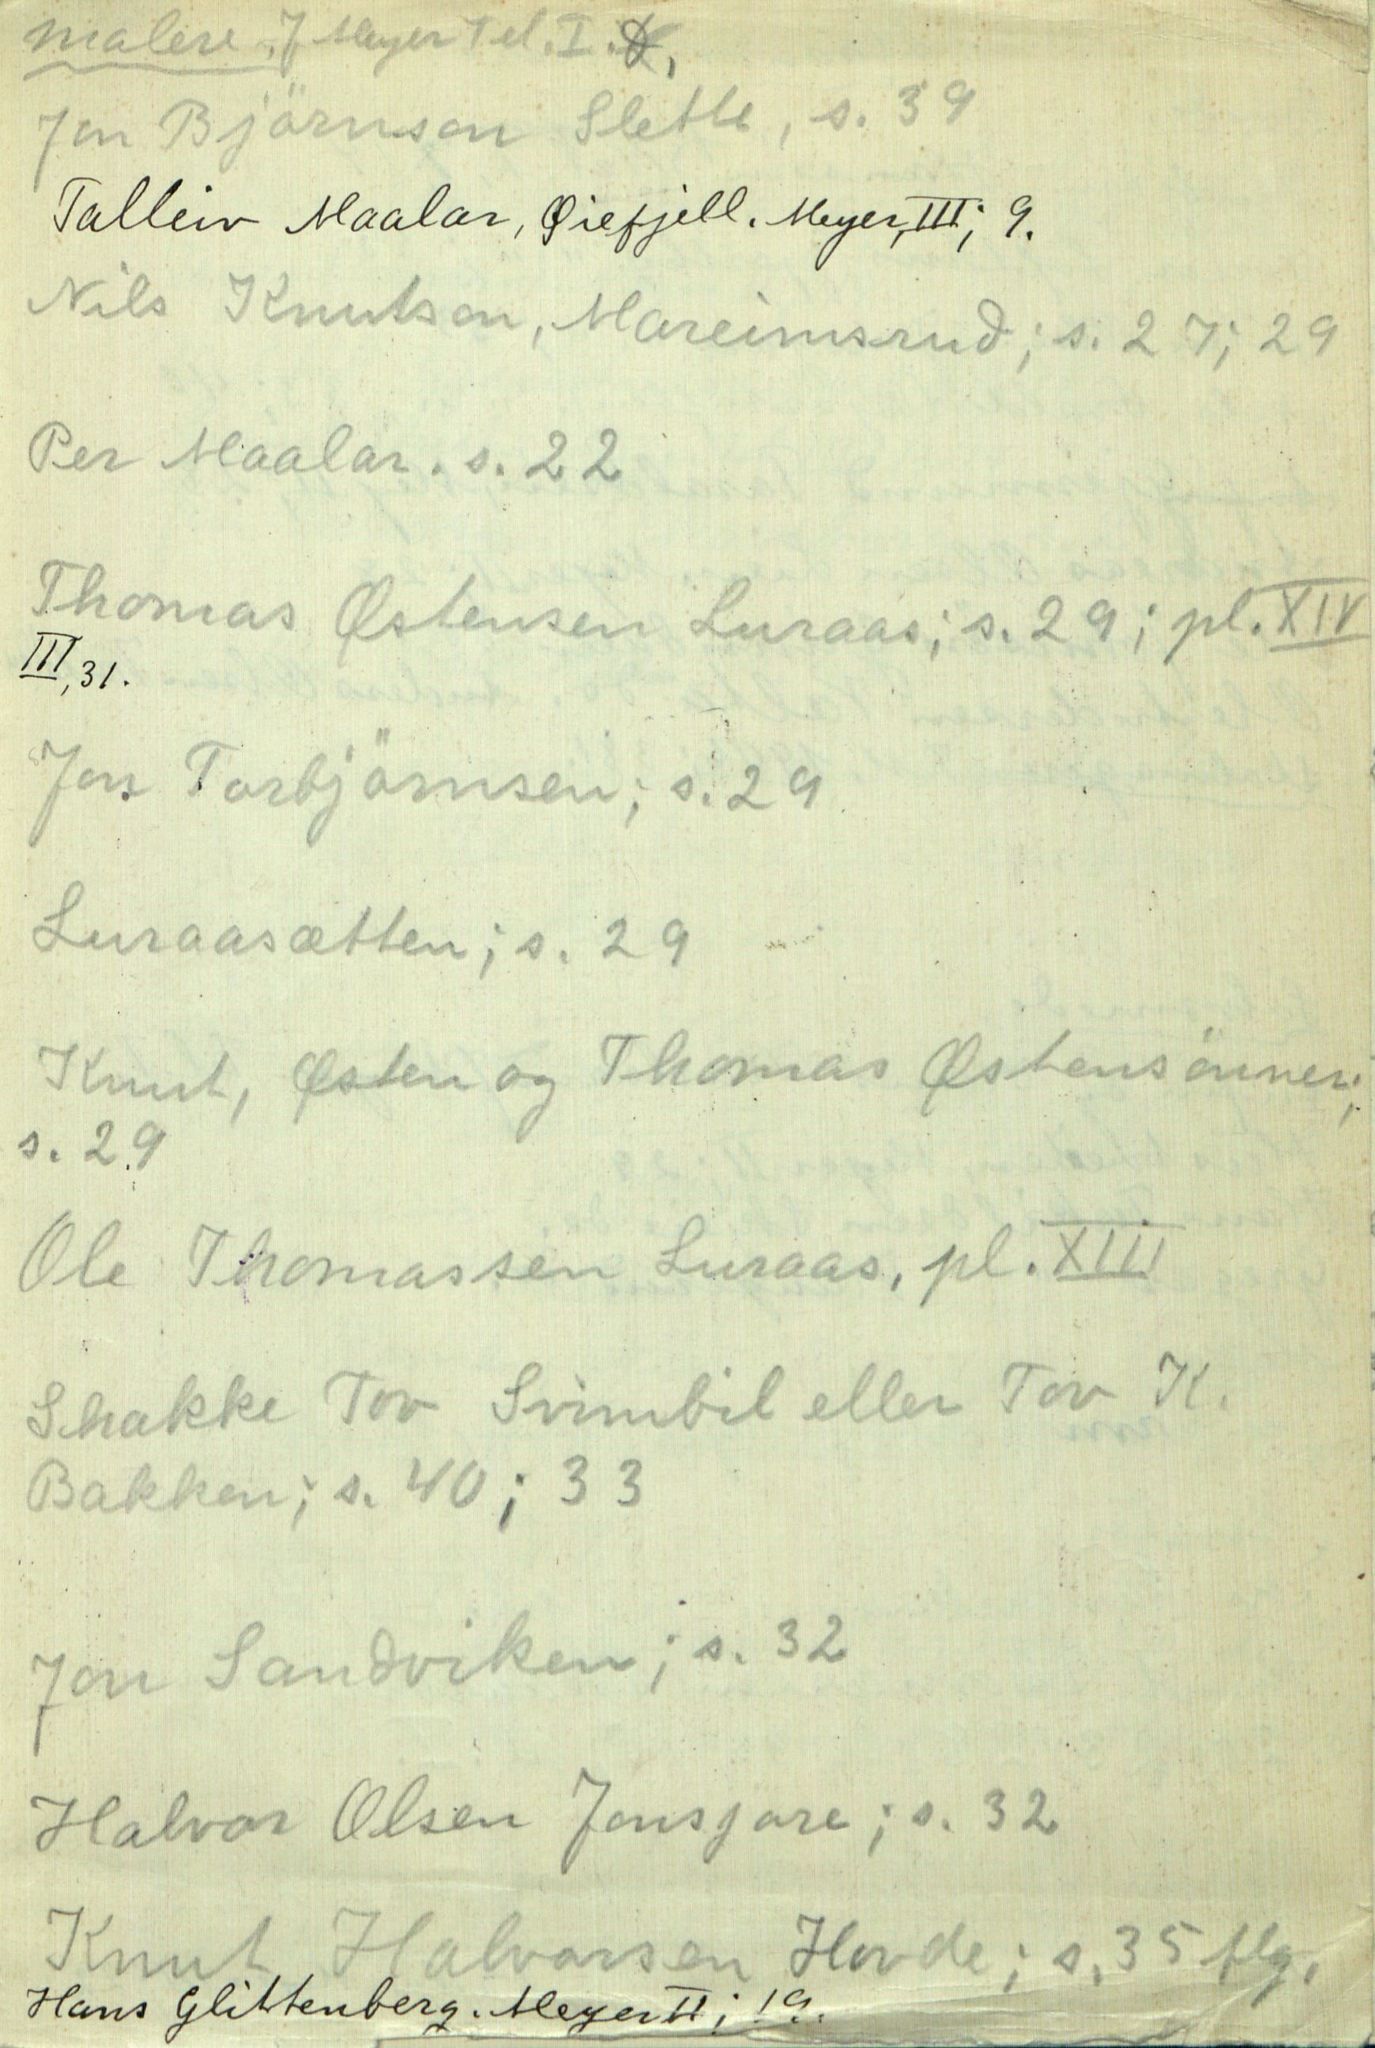 Malere. J Meyer Tel. I.
Jon Björnson Slette, s. 39
Talleiv Maalar, Øiefjell. Meyer, III; 9.
Nils Knutson, Mareimsrud; s. 27; 29
Per Maalar. s. 22
Thomas Østensen Luraas; s. 29; pl. XIV
III, 31.
Jon Torbjörnsen; s. 29
Luraasætten; s. 29
Knut, Østen og Thomas Østensönner;
s. 29
Ole Thomassen Luraas, pl. XIII
Skakke Tov Svimbil eller Tov K.
Bakken; s. 40; 33
Jon Sandviken; s. 32
Halvor Olsen Jonsjore; s. 32
Knut Halvorsen Hovde; s. 35 flg.
Hans Glittenberg. Meyer II; 19.